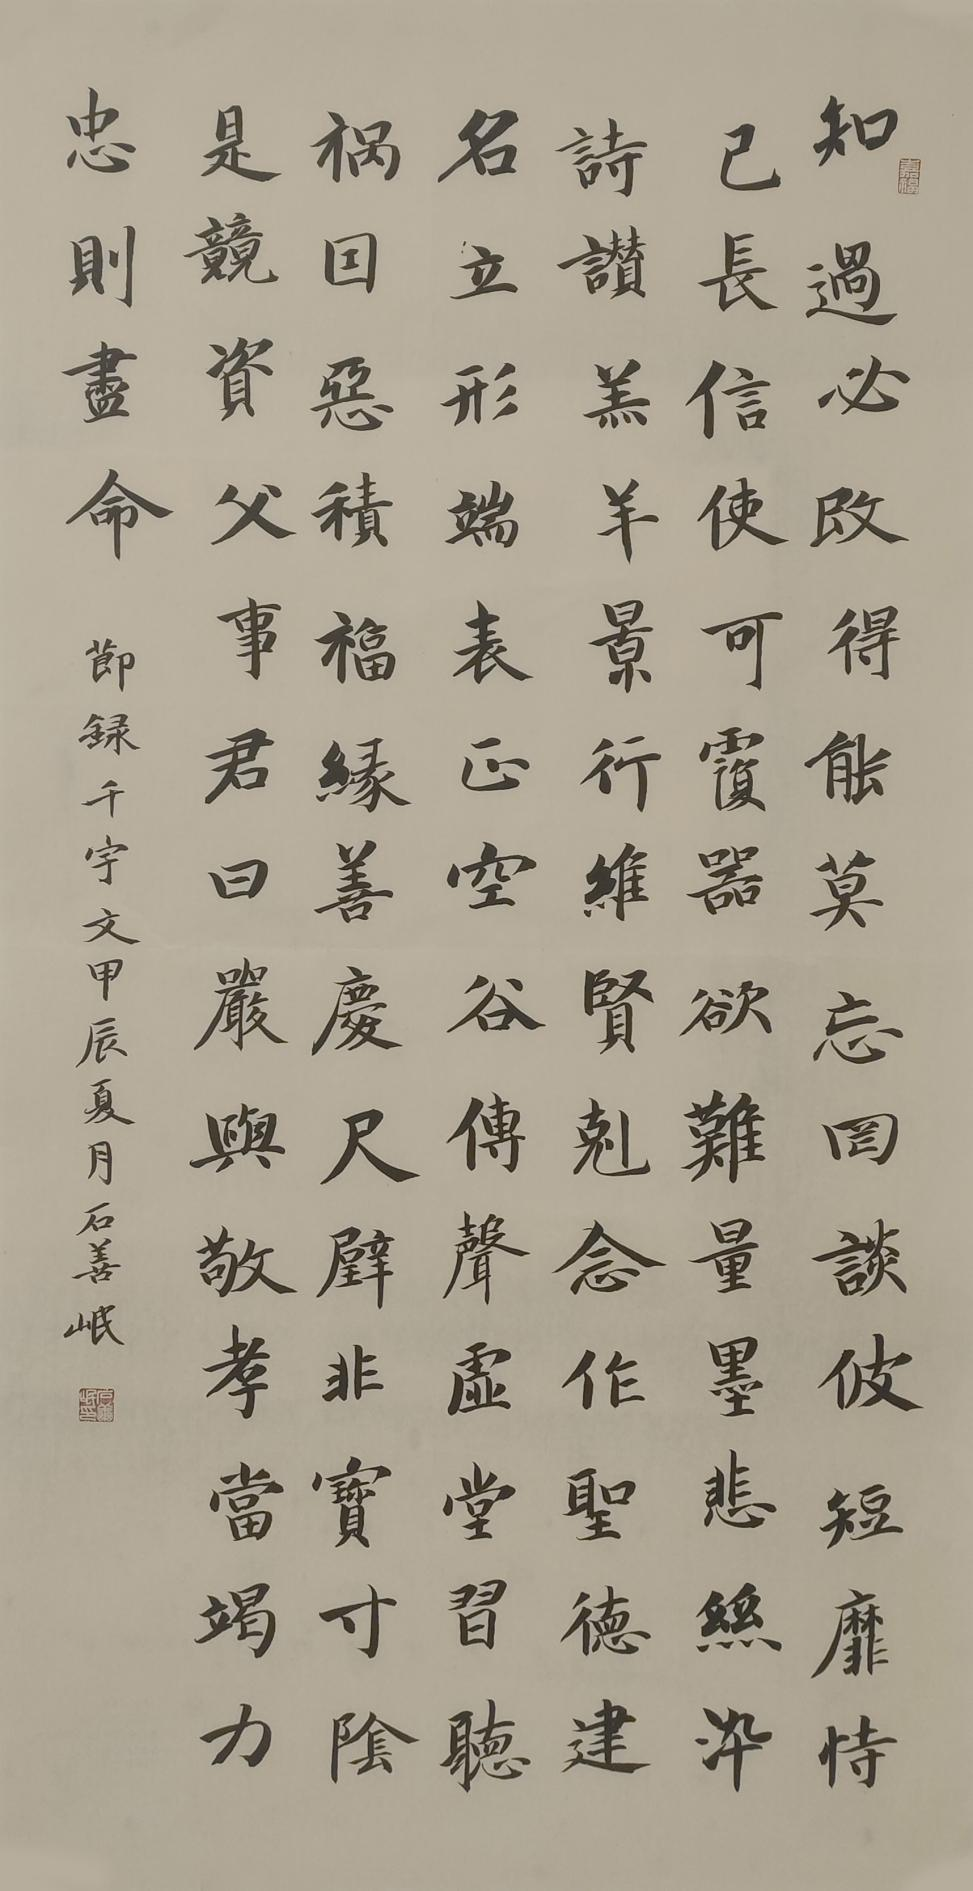 知過必改得能莫忘罔談彼短靡恃
已長信使可覆器欲難量墨悲絲染
詩讃羔羊景行維賢剋念作聖德建
名立形端表正空谷傳聲虛堂習聽
禍因惡積福緣善慶尺璧非寶寸陰
是競資父事君曰嚴與敬孝當竭力
忠則盡命
節録千字文甲辰夏月石善岷